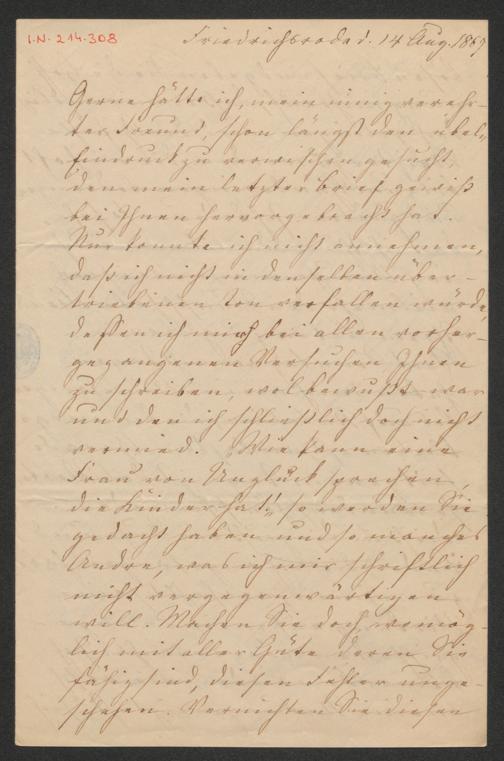 I.N. 214.308
Friedrichsroda d. 14 Aug. 1869
Gerne hätte ich, mein innig verehr-
ter Freund, schon längst den übeln
Eindruck zu verwischen gesucht,
den mein letzter Brief gewiß
bei Ihnen hervorgebracht hat.
Nur konnte ich nicht annehmen,
daß ich nicht in denselben über-
triebenen Ton verfallen würde,
dessen ich mich bei allen vorher-
gegangenen Versuchen Ihnen
zu schreiben, wol bewußt war
und den ich schließlich doch nicht
vermied. "Wie kann eine
Frau von Unglück sprechen,
die Kinder hat!" so werden Sie
gedacht haben und so manches
Andre, was ich mir schriftlich
nicht vergegenwärtigen
will. Machen Sie doch womög-
lich mit aller Güte deren Sie
fähig sind, diesen Fehler unge-
schehen. Vernichten Sie diesen